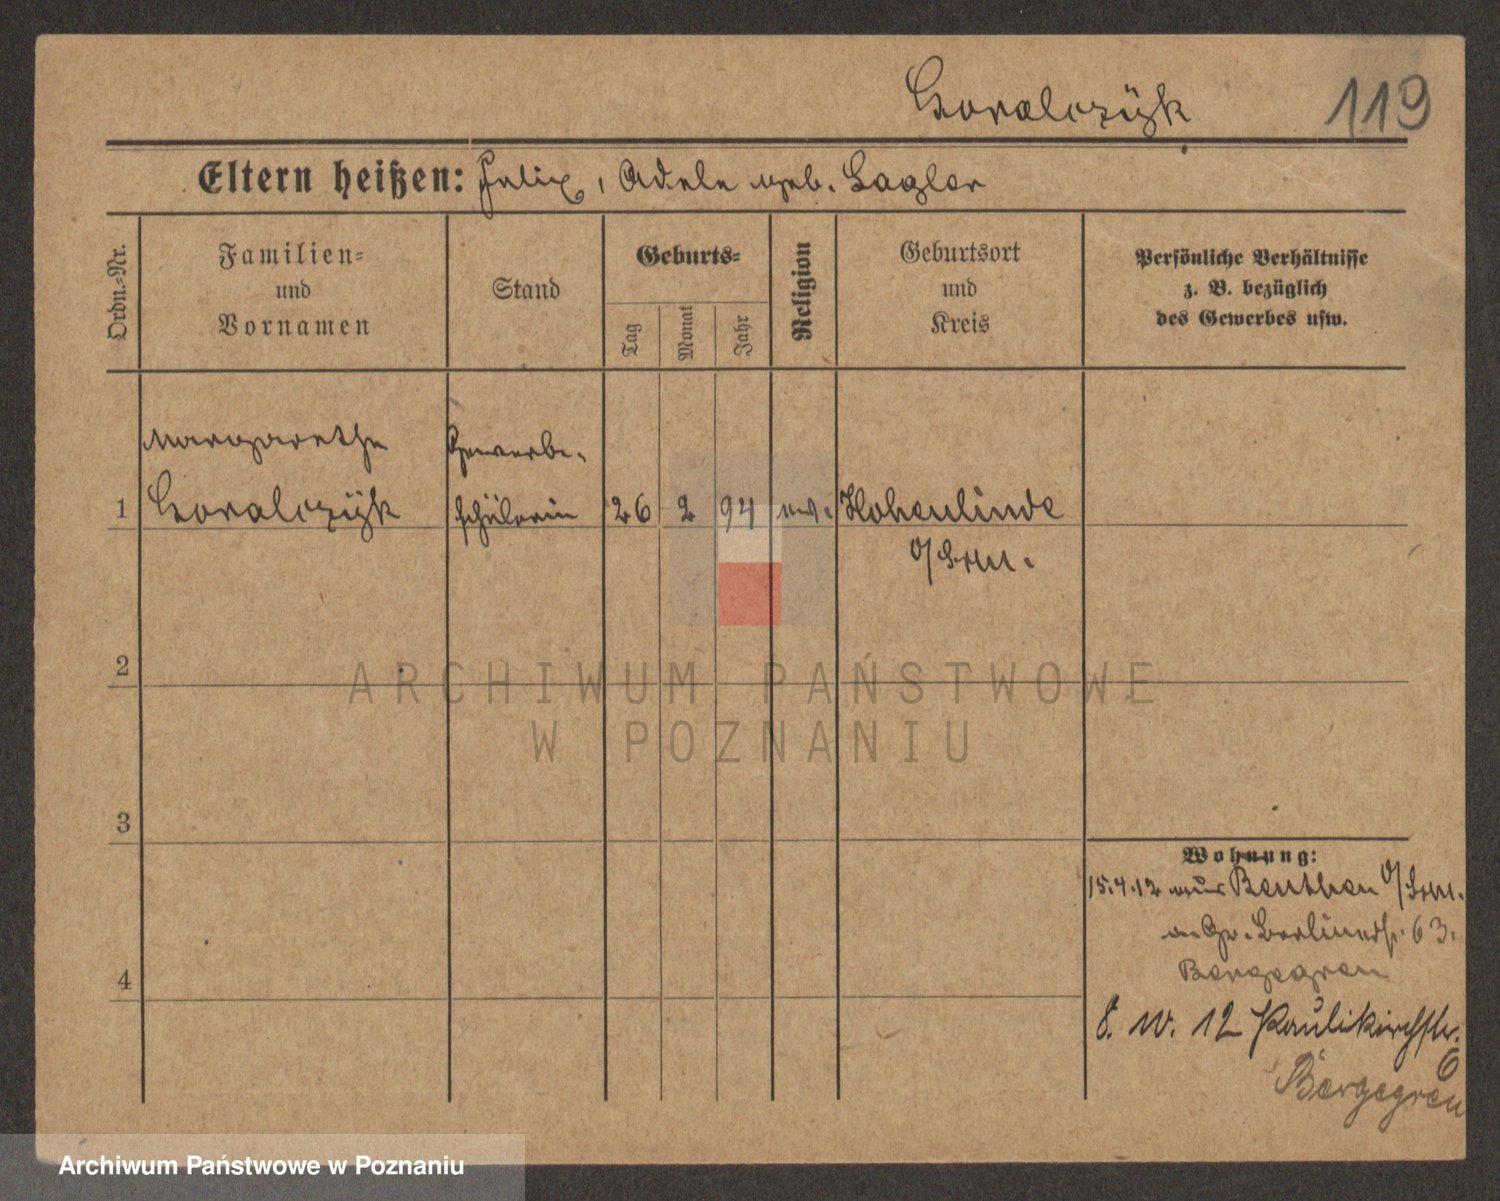 Goralczÿk 119
Eltern heißen: Felix, Adele geb. Lagler
Ordn.-Nr.
Familien-
und
Vornamen
Stand
Geburts-
Tag
Monat
Jahr
Religion
Geburtsort
und
Kreis
Persönliche Verhältnisse
z. B. bezüglich
des Gewerbes usw.
Margarethe Gewerbe-
1 Goralczÿk schülerin 26 2 94 ev. Hohenlinde
2
3
4
Wohnung:
15.4.12 aus Beuthen
Gr. Berlinerstr. 63.
Bergegren
12 Paulikirchstr.
6
Bergegren
ARCHIWUM PAŃSTWOWE
W POZNANIU
Archiwum Państwowe w Poznaniu